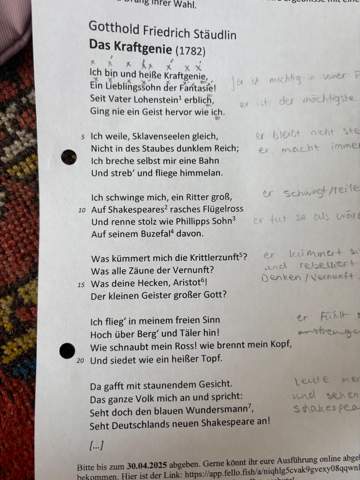 Gotthold Friedrich Stäudlin
Das Kraftgenie (1782)
Ich bin und heiße Kraftgenie,
Ein Lieblingssohn der Fantasie!
Seit Vater Lohenstein¹ erblich,
Ging nie ein Geist hervor wie ich.
er ist der mächtigste
5 Ich weile, Sklavenseelen gleich,
er bleibt nicht
Nicht in des Staubes dunklem Reich;
er macht
Ich breche selbst mir eine Bahn
Und streb' und fliege himmelan.
Ich schwinge mich, ein Ritter groß,
er schwingt/
10 Auf Shakespeares² rasches Flügelross
Und renne stolz wie Phillipps Sohn³
er tut so als
Auf seinem Buzefal⁴ davon.
Was kümmert mich die Krittlerzunft⁵?
er kümmert
Was alle Zäune der Vernunft?
und rebelliert
15 Was deine Hecken, Aristot⁶!
Denken/Vernunft
Der kleinen Geister großer Gott?
Ich flieg' in meinem freien Sinn
er fühlt
Hoch über Berg' und Täler hin!
Wie schnaubt mein Ross! wie brennt mein Kopf,
20 Und siedet wie ein heißer Topf.
Da gafft mit staunendem Gesicht.
Leute
Das ganze Volk mich an und spricht:
und sehen
Seht doch den blauen Wundersmann⁷,
Shakespea
Seht Deutschlands neuen Shakespeare an!
[...]
Bitte bis zum 30.04.2025 abgeben. Gerne könnt ihr eure Ausführung online abge
bekommen. Hier ist der Link: https://app.fello.fish/a/